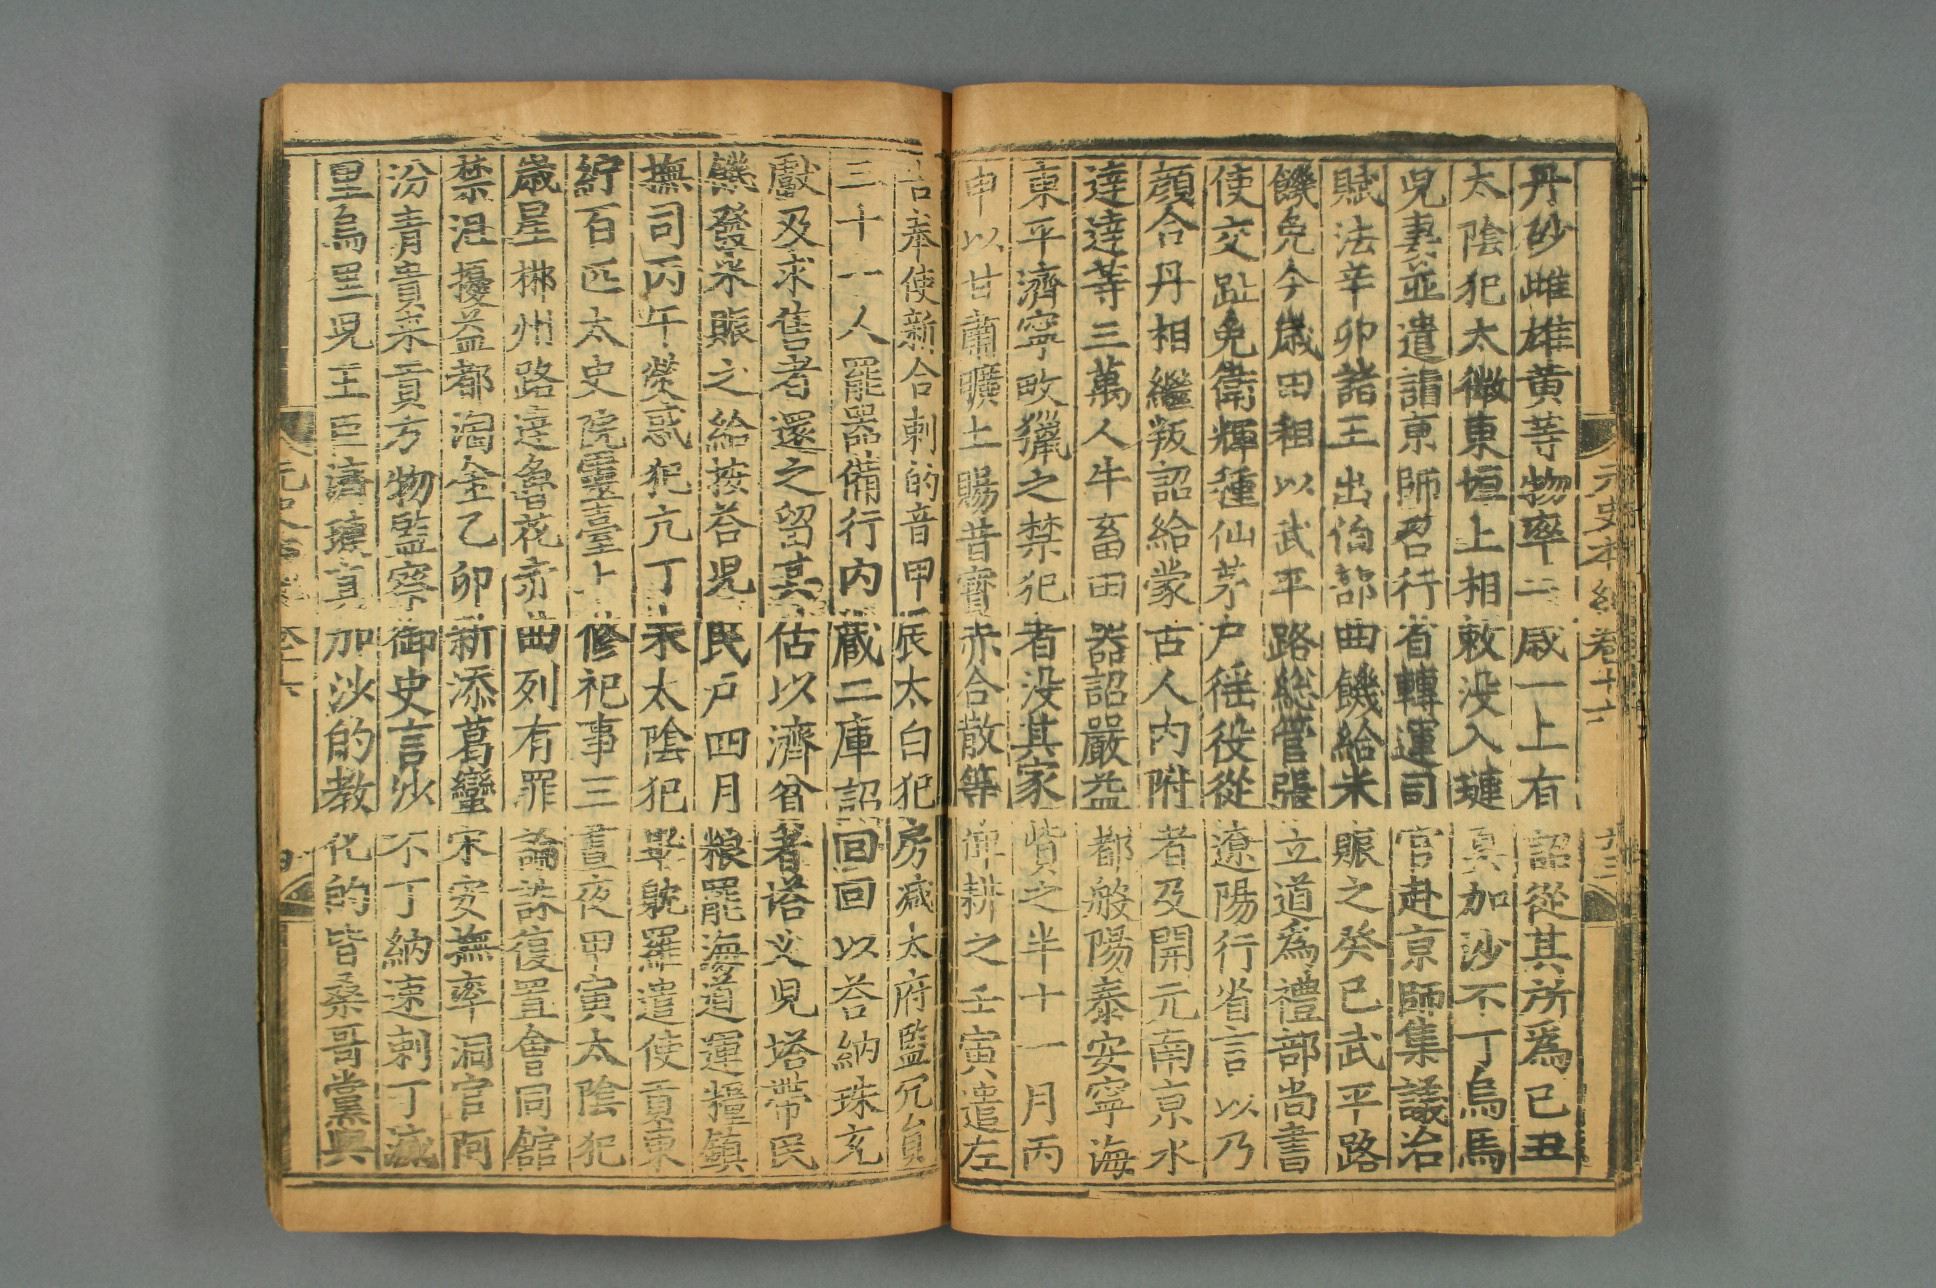 元史本紀卷十六
十三
丹砂雌雄黃等物率二歲一上有詔從其所爲己丑
太陰犯太微東垣上相敕没入璉真加沙不丁烏馬
児妻並遣詣京師召行省轉運司官赴京師集議治
賦法辛卯諸王出伯部曲饑給米賑之癸巳武平路
饑免今歲田租以武平路総管張立道爲禮部尚書
使交趾免衛輝種仙茅戶徭役從遼陽行省言以乃
顔合丹相繼叛詔給蒙古人内附者及開元南京水
達達等三萬人牛畜田器詔嚴益都般陽泰安寧海
東平濟寧畋獵之禁犯者没其家貲之半十一月丙
申以甘肅曠土賜昔寶赤合散等俾耕之壬寅遣左
吉奉使新合剌的音甲辰太白犯房減太府監冗員
三十一人罷器備行内藏二庫詔回回以荅納珠充
獻及求售者還之留其估以濟貧者塔义児塔帶民
饑發米賑之給按荅児民戶四月糧罷海道運糧鎮
撫司丙午熒惑犯亢丁未太陰犯畢䬃羅遣使貢東
紵百匹太史院靈臺上修祀事三晝夜甲寅太陰犯
歲星梆州路達魯花赤曲列有罪論誅復置會同舘
禁沮擾益都淘金乙卯新添葛蠻宋安撫率洞官阿
汾青貴來貢方物監察御史言沙不丁納速剌丁滅
里烏里児王巨濟璉真加沙的教化的皆桑哥黨與